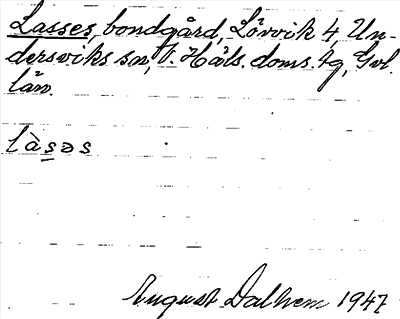 Lasses, bondgård, Lörvik 4, Un-
dersviks sn, V. Häls. doms. tg, Gvl.
län.
làsəs
August Dalhem 1947